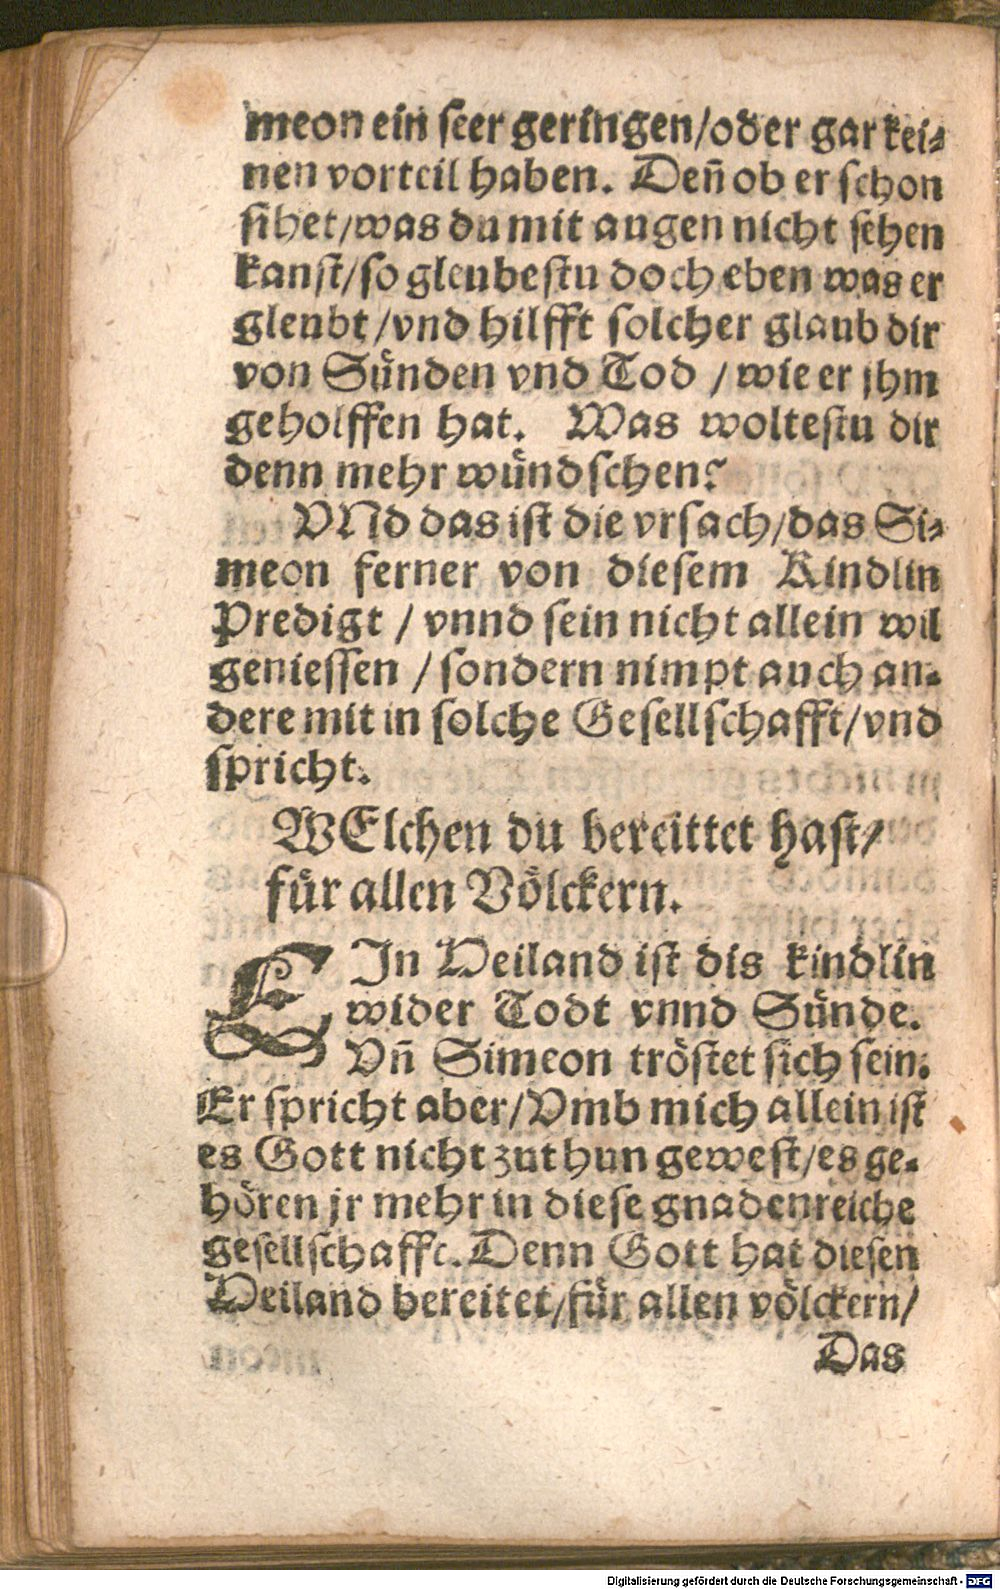 meon ein seer geringen/oder gar kei⸗
nen vorteil haben. Deñ ob er schon
sihet/was du mit augen nicht sehen
kanst/so gleubestu doch eben was er
gleubt/vnd hilfft solcher glaub dir
von Sünden vnd Tod / wie er jhm
geholffen hat. Was woltestu dir
denn mehr wündschen?
VNd das ist die vrsach/das Si⸗
meon ferner von diesem Kindlin
Predigt / vnnd sein nicht allein wil
geniessen / sondern nimpt auch an⸗
dere mit in solche Gesellschafft/vnd
spricht.
WElchen du bereittet hast/
für allen Völckern.
EIn Heiland ist dis kindlin
wider Todt vnnd Sünde.
Vñ Simeon tröstet sich sein.
Er spricht aber/Vmb mich allein ist
es Gott nicht zuthun gewest/es ge⸗
hören jr mehr in diese gnadenreiche
gesellschafft. Denn Gott hat diesen
Heiland bereitet/für allen völckern/
Das
Digitalisierung gefördert durch die Deutsche Forschungsgemeinschaft - DFG